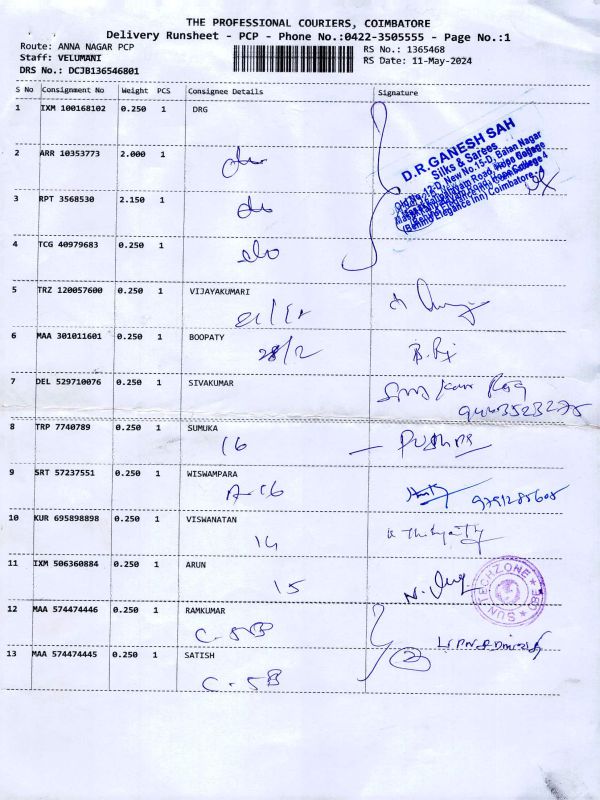 THE PROFESSIONAL COURIERS, COIMBATORE
Delivery Runsheet - PCP - Phone No.:0422-3505555 - Page No.:1
Route: ANNA NAGAR PCP
RS No.: 1365468
Staff: VELUMANI
RS Date: 11-May-2024
DRS No.: DCJB136546801
S No Consignment No Weight PCS Consignee Details Signature
1 IXM 100168102 0.250 1 DRG
D.R.GANESH SAH
Silks & Sarees
2 ARR 10353773 2.000 1
3 RPT 3568530 2.150 1
(Behind Elegance Inn) Coimbatore
4 TCG 40979683 0.250 1
5 TRZ 120057600 0.250 1 VIJAYAKUMARI
6 MAA 301011601 0.250 1 BOOPATY
28/2
7 DEL 529710076 0.250 1 SIVAKUMAR
9443523275
8 TRP 7740789 0.250 1 SUMUKA
16
9 SRT 57237551 0.250 1 WISWAMPARA
A-16 9791285605
10 KUR 695898898 0.250 1 VISWANATAN
14
11 IXM 506360884 0.250 1 ARUN
15
SUN TECHZONE CBE
12 MAA 574474446 0.250 1 RAMKUMAR
C-5B
13 MAA 574474445 0.250 1 SATISH
C-5B
2